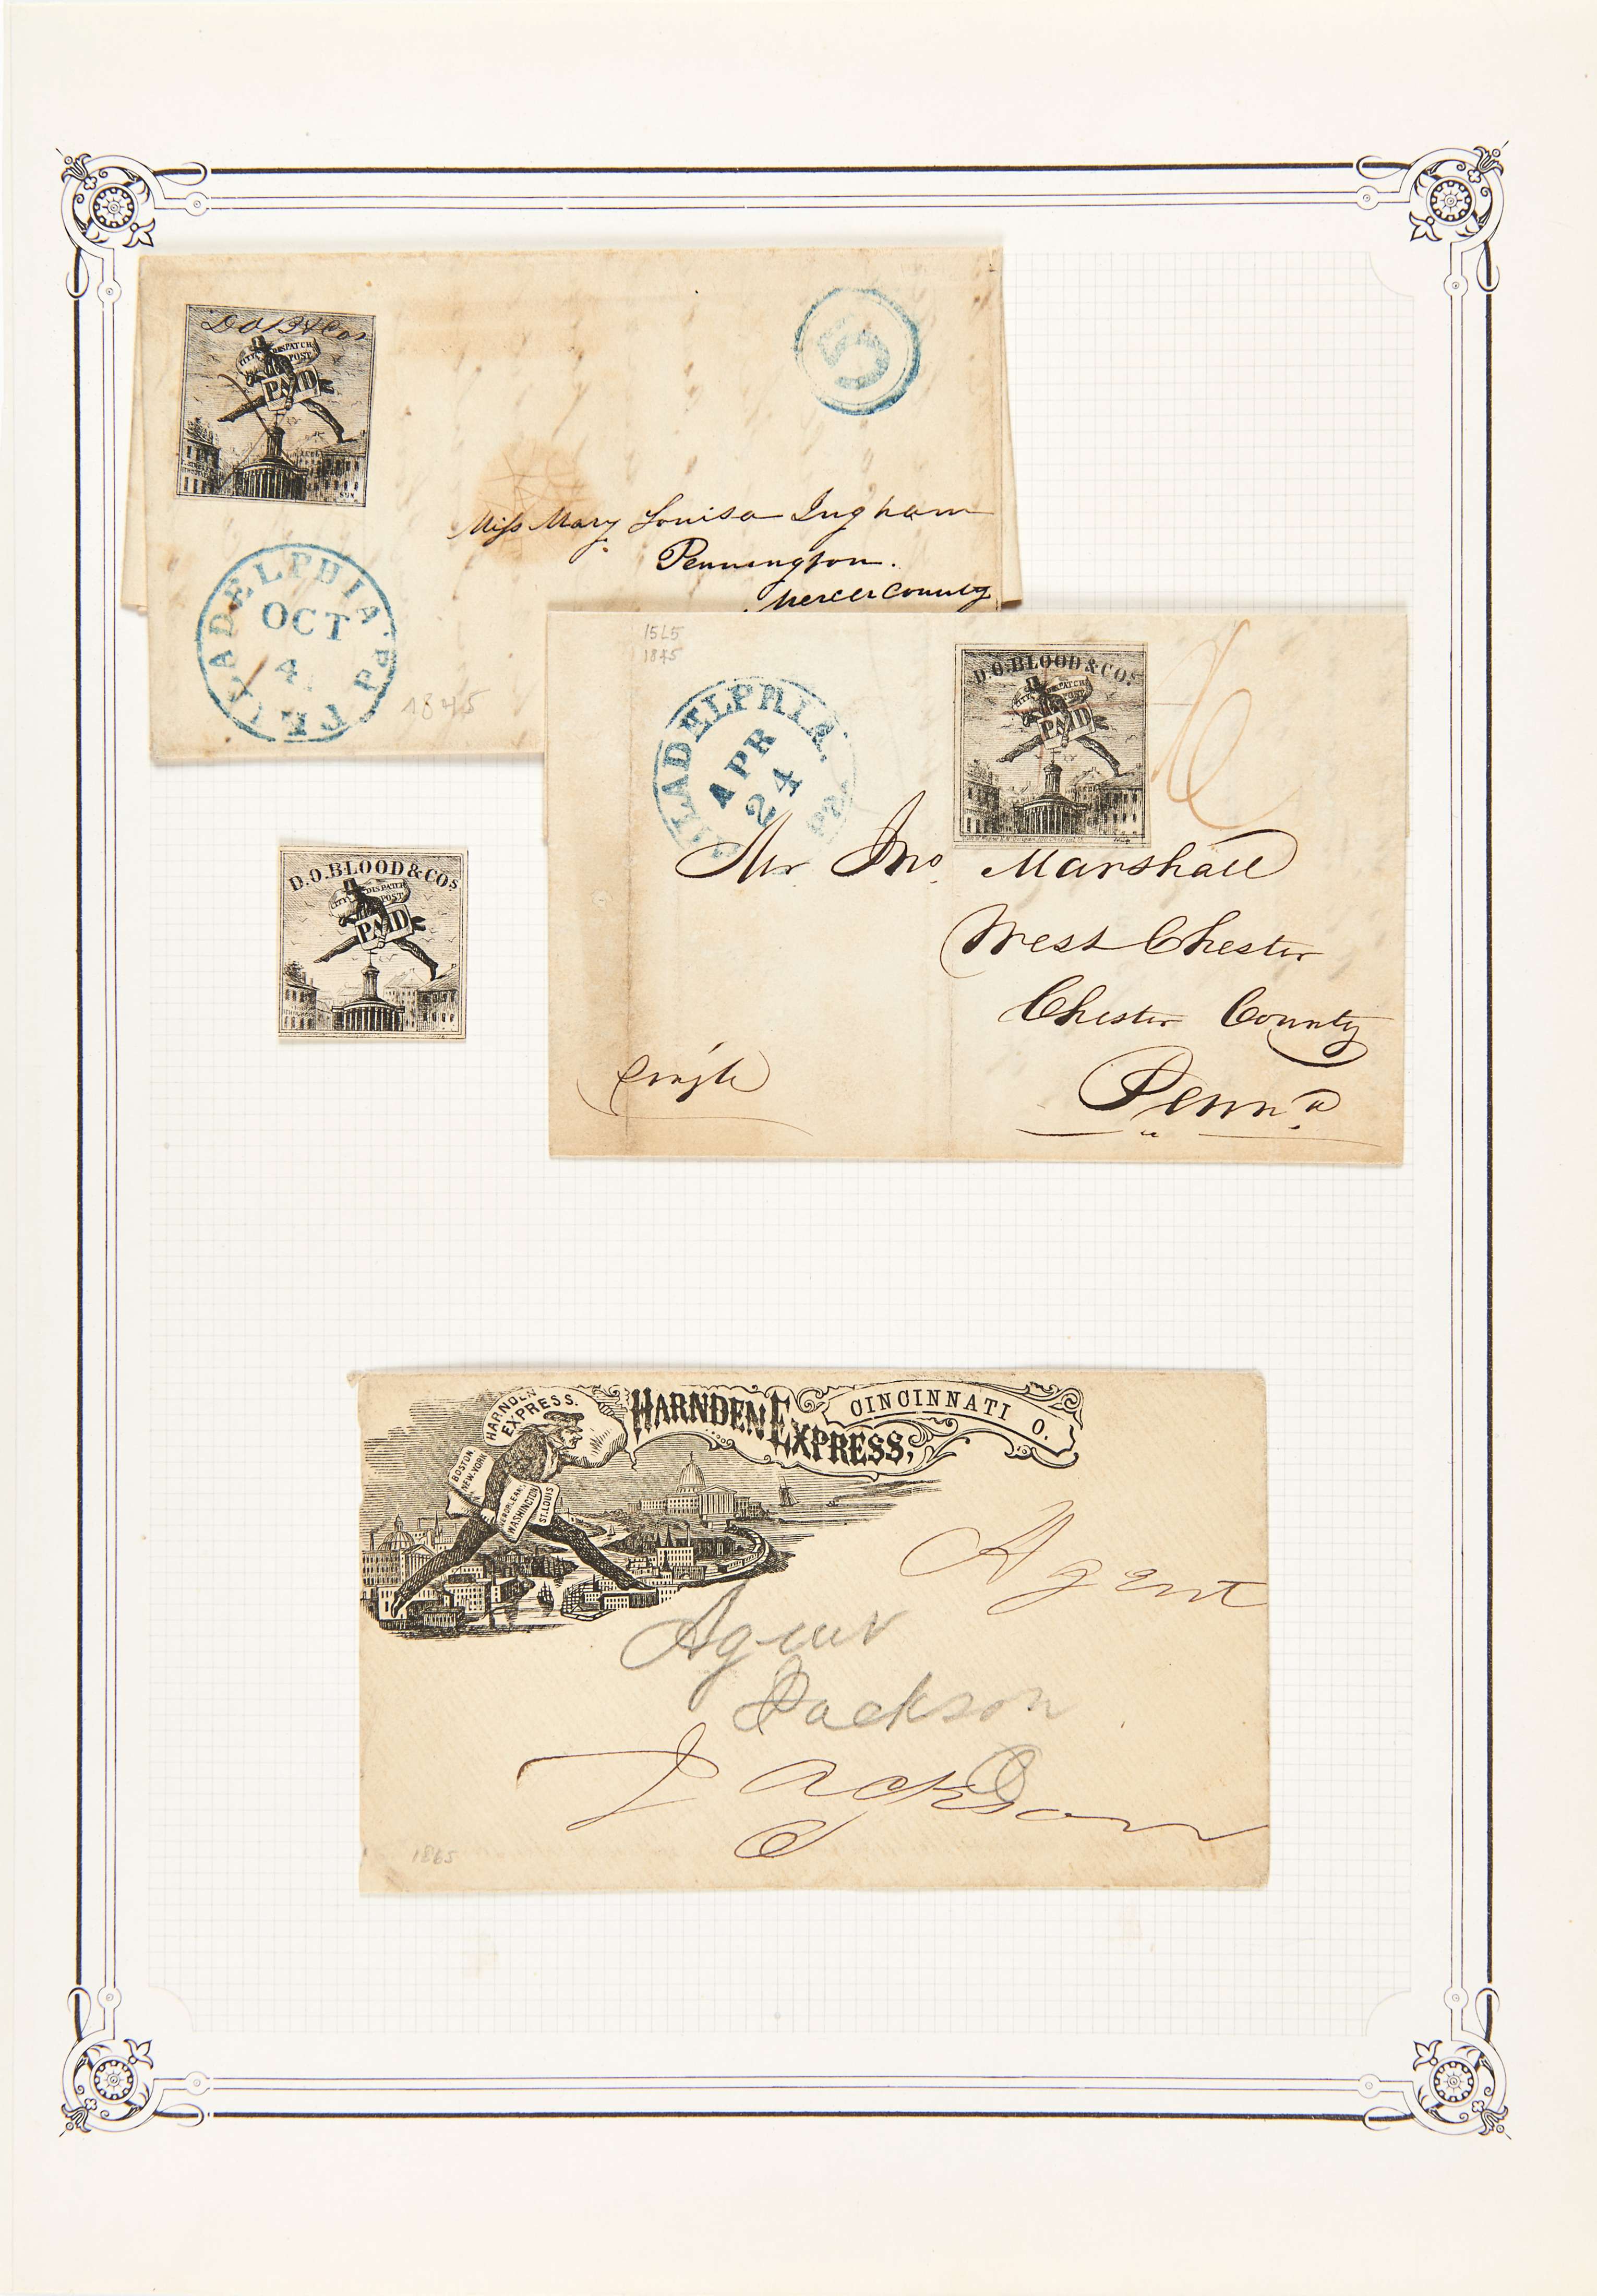 D O B & Cos
CITY DESPATCH
POST
PAID
SUN
5
Miss Mary Louisa Ingham
Pennington.
Mercer County
PHILADELPHIA Pa
OCT
4
1845
15L5
1845
PHILADELPHIA Pa
APR
24
D.O.BLOOD & COs
CITY DESPATCH
POST
PAID
Mr Jno. Marshall
West Chester
Chester County
Penn.a
Single
D.O.BLOOD & COs
CITY DESPATCH
POST
PAID
HARNDEN
EXPRESS.
HARNDEN EXPRESS,
CINCINNATI O.
BOSTON
NEW-YORK
NEW ORLEANS
WASHINGTON
ST.LOUIS
Agent
Agent
Jackson
Jackson
O
1865